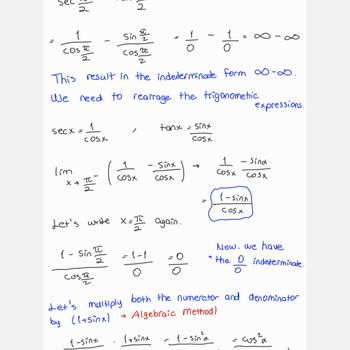 sec π/2   2
= 1/cos π/2 - sin π/2 / cos π/2 = 1/0 - 1/0 = ∞ - ∞
This result in the indeterminate form ∞-∞.
We need to rearrage the trigonometric
expressions.
secx = 1/cosx , tanx = sinx/cosx
lim x→π/2⁻ (1/cosx - sinx/cosx) → 1/cosx - sinx/cosx
= 1-sinx/cosx
Let's write x=π/2 again.
1 - sin π/2 / cos π/2 = 1-1/0 = 0/0
Now, we have
* the 0/0 indeterminate.
Let's multiply both the numerator and denominator
by (1+sinx) → Algebraic Method)
1-sinx . 1+sinx = 1-sin²x = cos²x